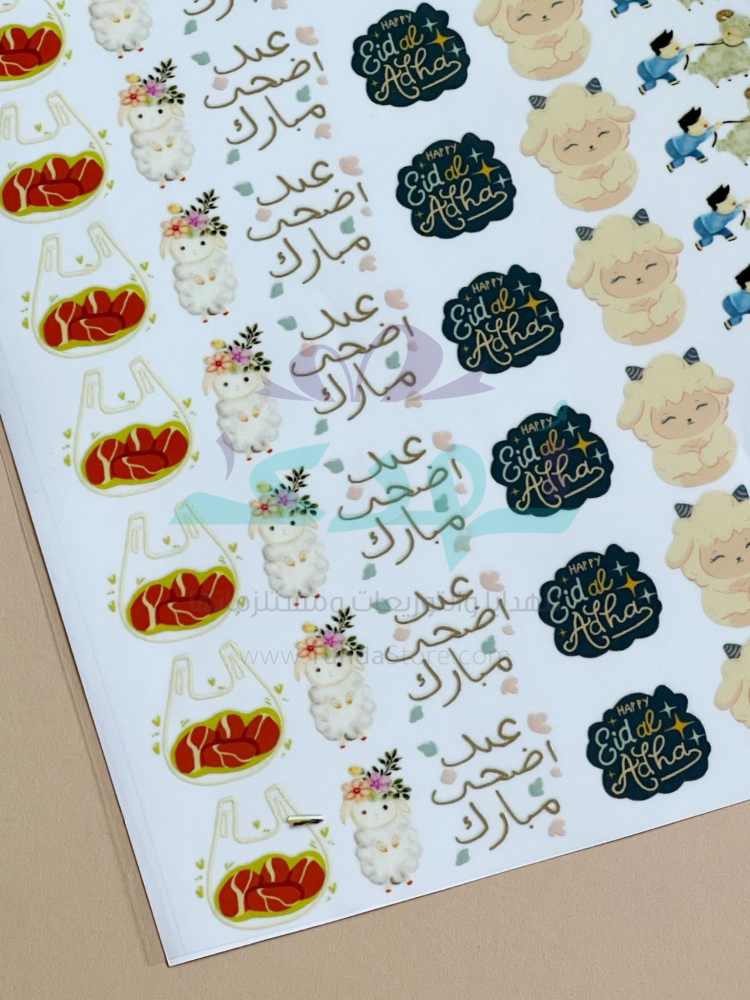 عيد
اضحى
مبارك
HAPPY
Eid al
Adha
عيد
اضحى
مبارك
HAPPY
Eid al
Adha
عيد
اضحى
مبارك
HAPPY
Eid al
Adha
عيد
اضحى
مبارك
HAPPY
Eid al
Adha
هدايا والتوزيعات
عيد
اضحى
مبارك
HAPPY
Eid al
Adha
عيد
اضحى
مبارك
HAPPY
Eid al
Adha